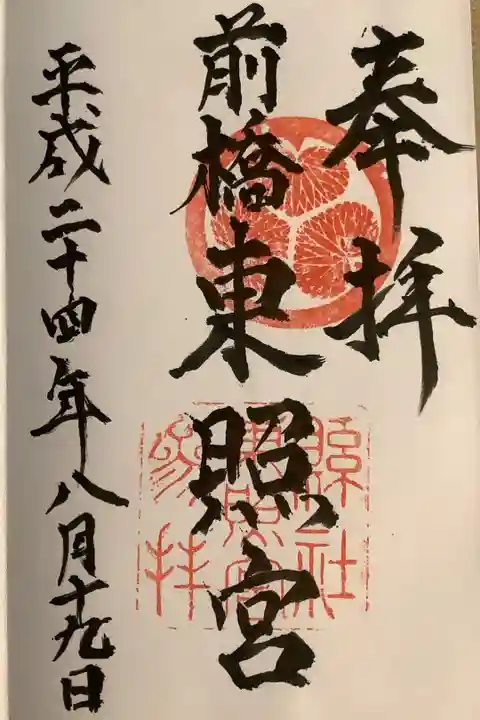 奉拝
前橋東照宮
縣社
東照宮
参拝
平成二十四年八月十九日